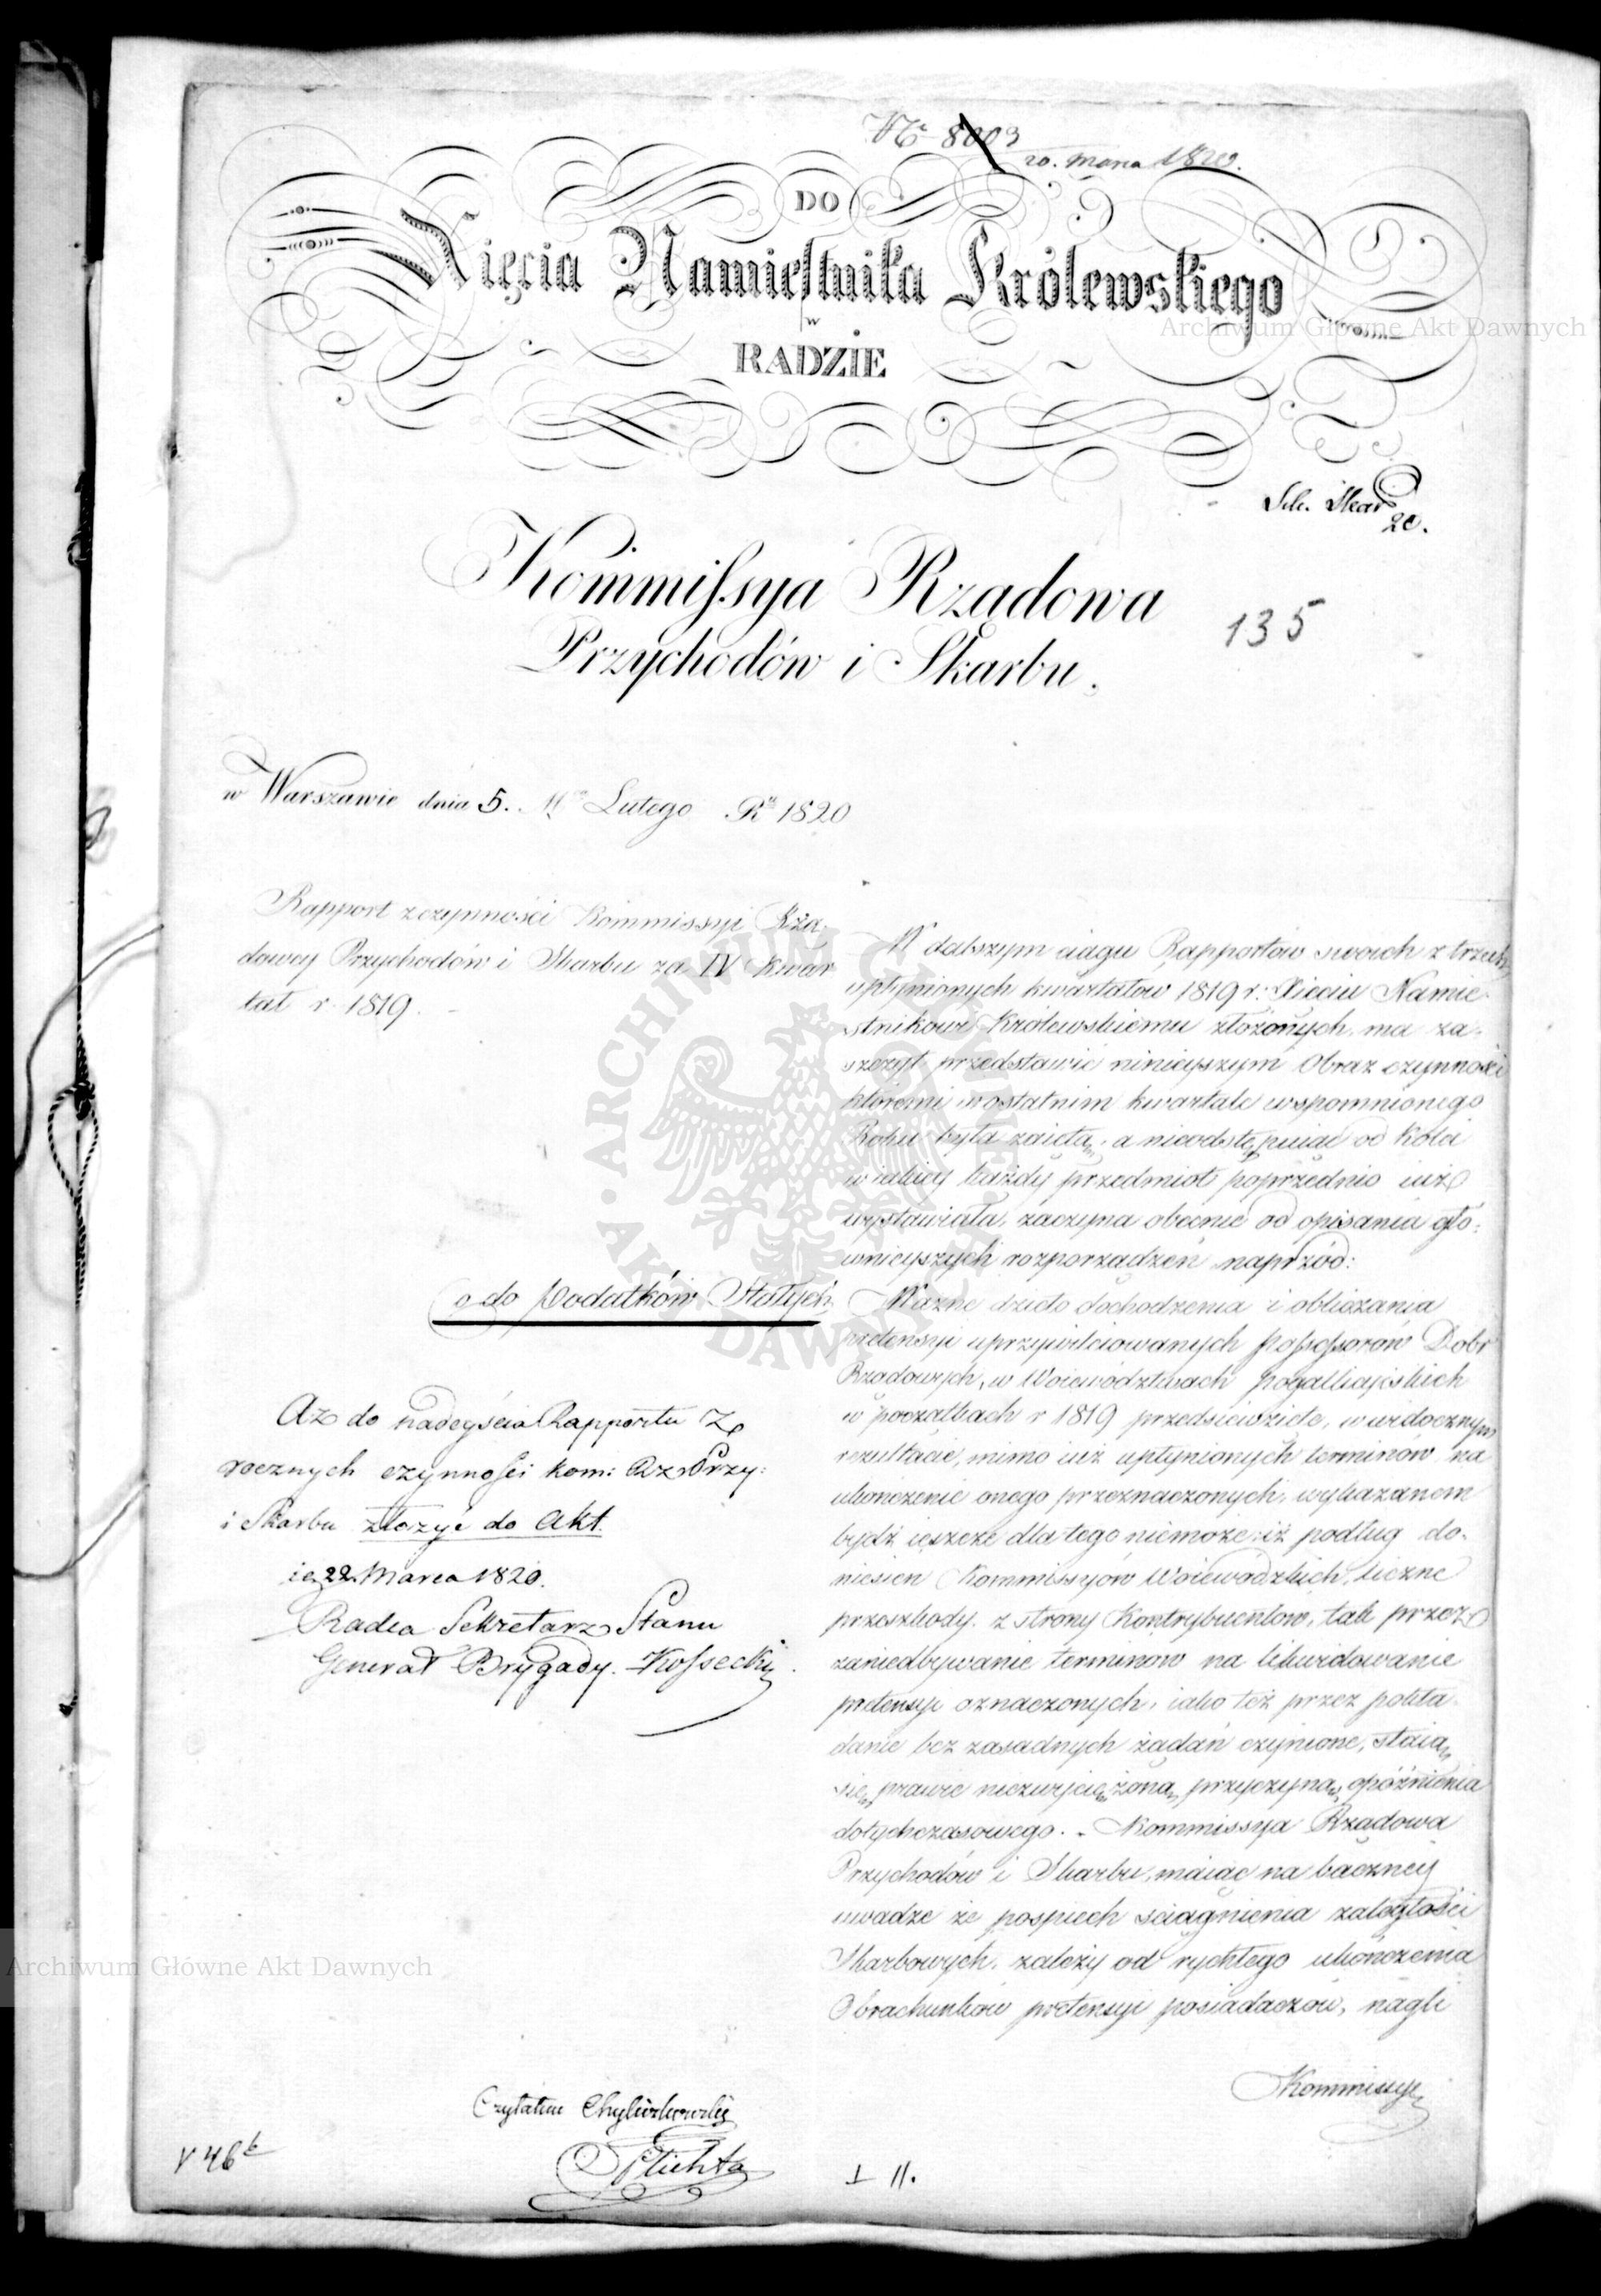 Nr 8003
20. Marca 1820.
DO
Xięcia Namiestnika Królewskiego
w
RADZIE
Archiwum Główne Akt Dawnych
20.
Kommissya Rządowa
Przychodów i Skarbu.
135
w Warszawie dnia 5. Mca Lutego Rku 1820
Rapport z czynności Kommissyi Rżą
dowey Przychodów i Skarbu za IV Kwar
tał r. 1819.
W dalszym ciągu Rapportów swoich z trzech
upłynionych kwartałów 1819 r: Xięciu Namie
stnikowi Królewskiemu złożonych, ma za-
szczyt przedstawić ninieyszym Obraz czynności
któremi w ostatnim kwartale wspomnionego
Roku była zaiętą, a nieodstępuiąc od kolei
w iakiey każdy przedmiot poprzednio iuż
wystawiała, zaczyna obecnie od opisania głó-
wnieyszych rozporządzeń naprzód:
co do Podatków Stałych
Ważne dzieło dochodzenia i obliczania
pretensyi uprzywileiowanych possessorów Dobr
Rządowych, w Woiewództwach pogallicyiskich
w początkach r 1819 przedsięwzięte, w widocznym
rezultacie, mimo iuż upłynionych terminów na
ukończenie onego przeznaczonych, wykazanem
bydź ieszcze dla tego niemoże: iż podług do-
niesień Kommissyów Woiewódzkich, liczne
przeszkody z strony Kontrybuentów, tak przez
zaniedbywanie terminów na likwidowanie
pretensyi oznaczonych, iako też przez pokła-
danie bez zasadnych żądań czynione, staią
się prawie niezwyciężoną przyczyną opóźnienia
dotychczasowego. - Kommissya Rządowa
Przychodów i Skarbu, maiąc na baczney
uwadze że pospiech ściągnienia zaległości
Skarbowych, zależy od rychłego ukończenia
Obrachunków pretensyi posiadaczów, nagli
Kommissye
Aż do nadeyścia Rapportu z
rocznych czynności Kom: Rz: Przy:
i Skarbu złożyć do Akt.
22. Marca 1820.
Radca Sekretarz Stanu
Generał Brygady. Kossecki
Archiwum Główne Akt Dawnych
Czytałem
Plichta
V 46
11.
ARCHIWUM GŁÓWNE AKT DAWNYCH